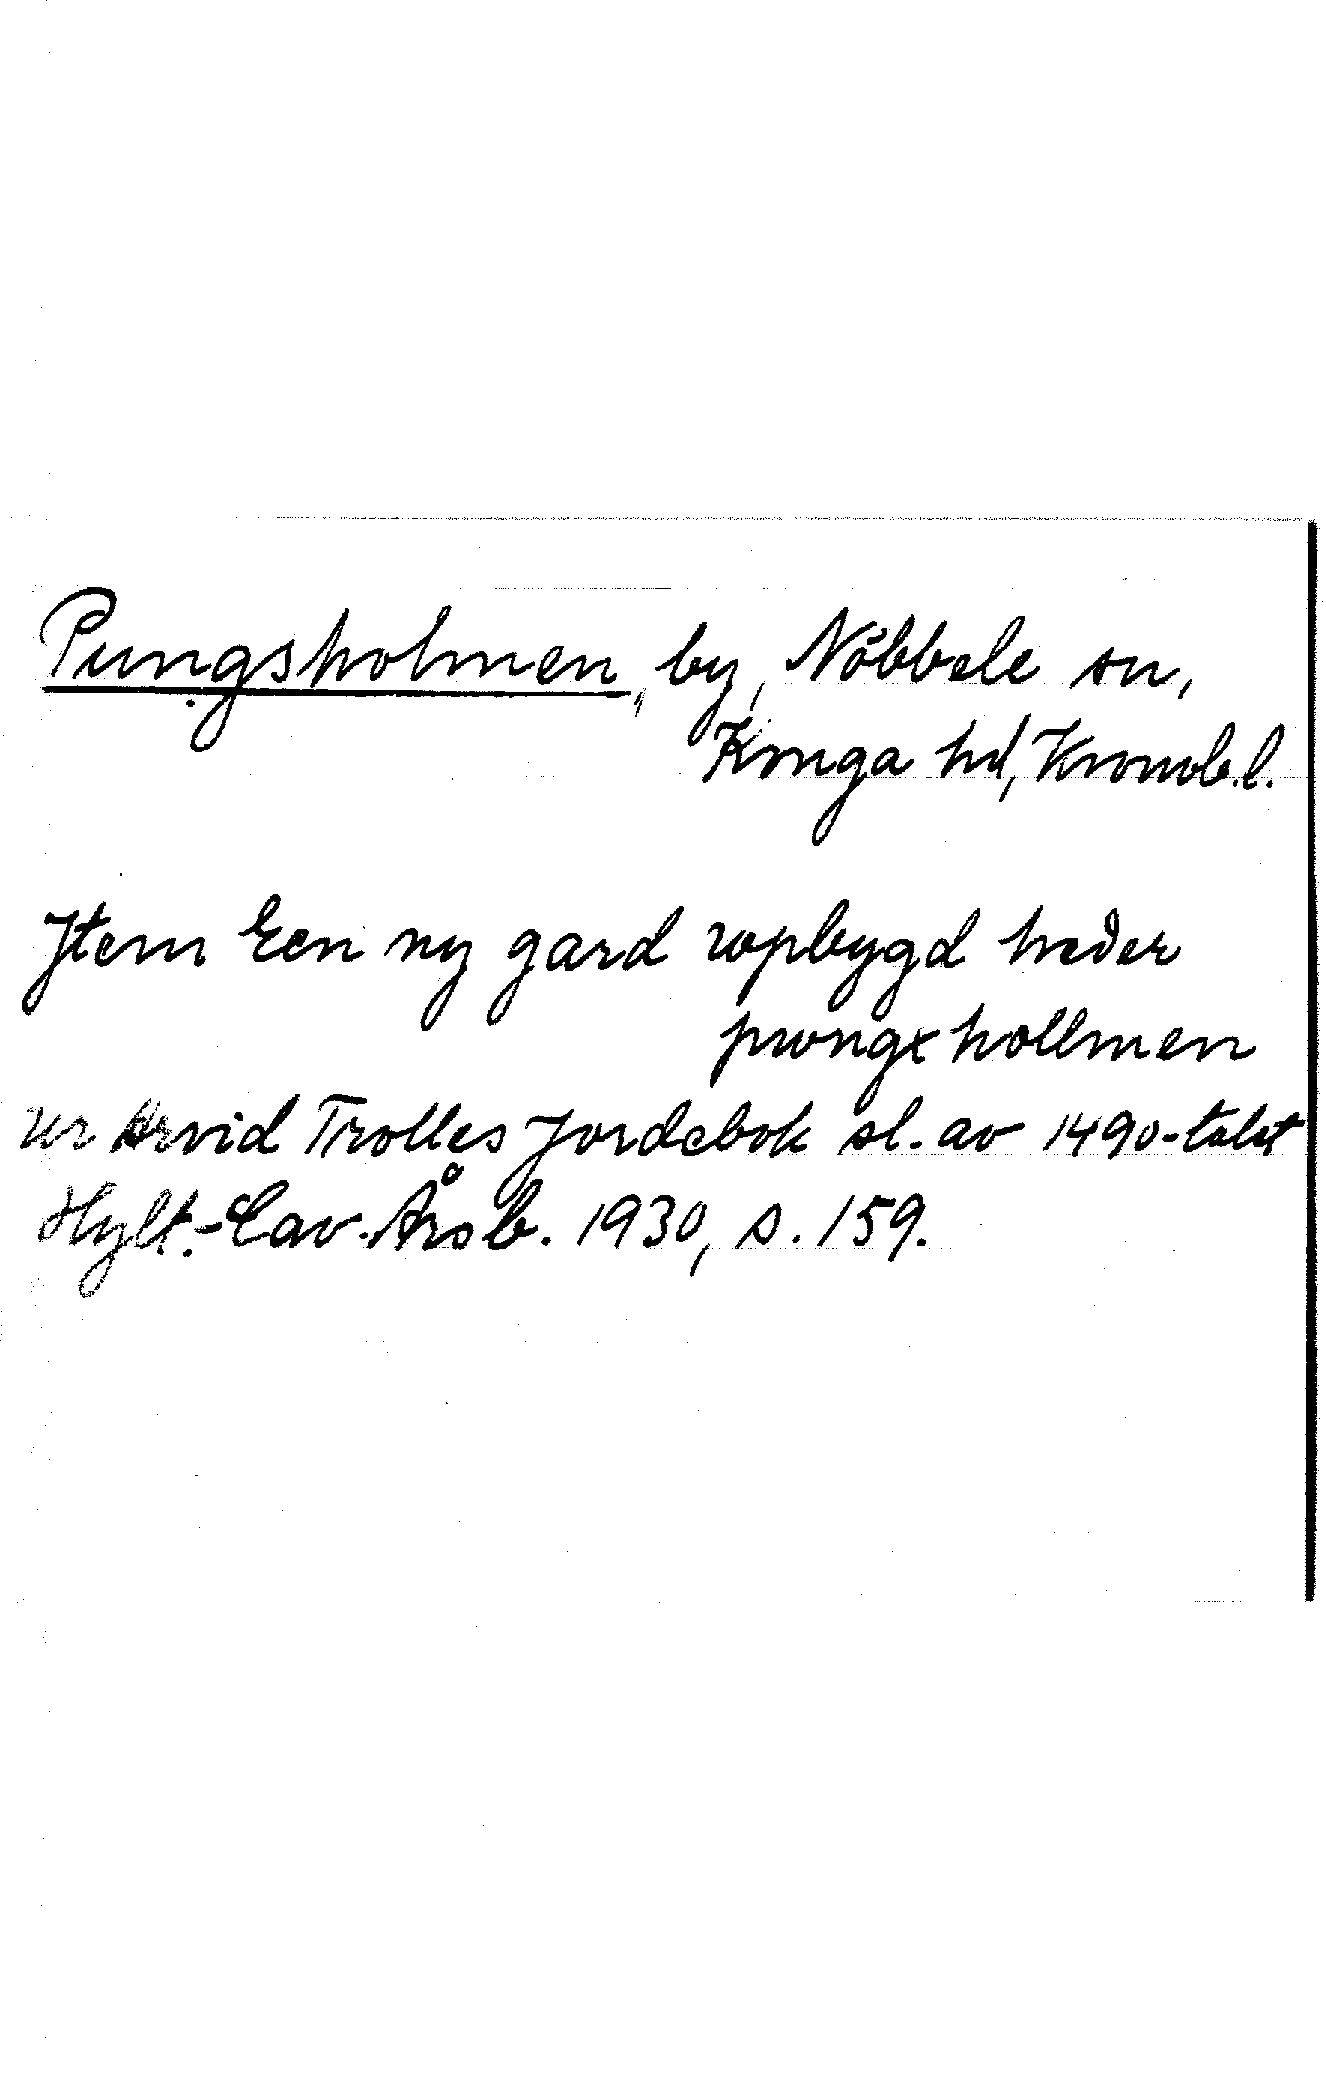 Pungsholmen, by, Nöbbele sn,
Konga hd, Kronob.l.
Jtem Een ny gard wpbygd heder
pwngxhollmen
ur Arvid Trolles Jordebok sl. av 1490-talet
Hylt.-Cav. Årsb. 1930, s. 159.